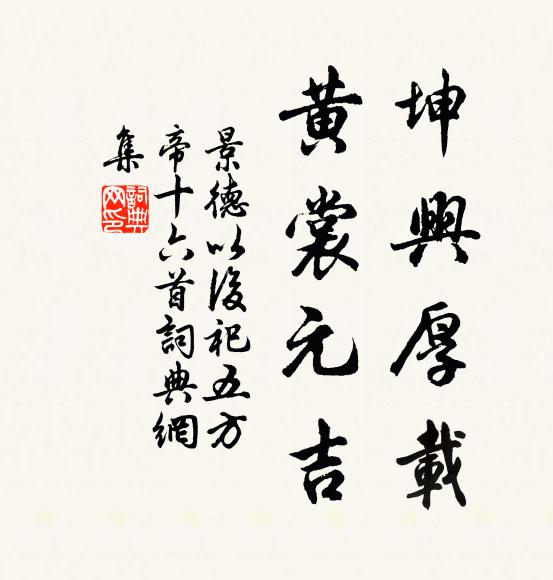 坤興厚載
黄裳元吉
景德以後祀五方
帝十六首詞典網
集
詞典
网印